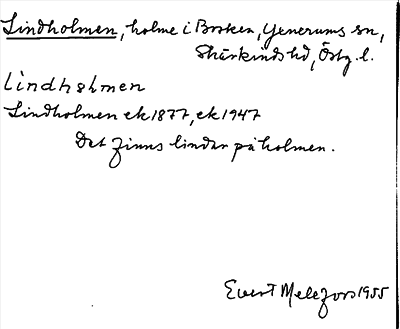 Lindholmen, holme i Borken, Yxnerums sn,
Skärkinds hd, Östg. l.
Lindholmen
Lindholmen ek 1877, ek 1947
Det finns lindar på holmen.
Evert Melefors 1955